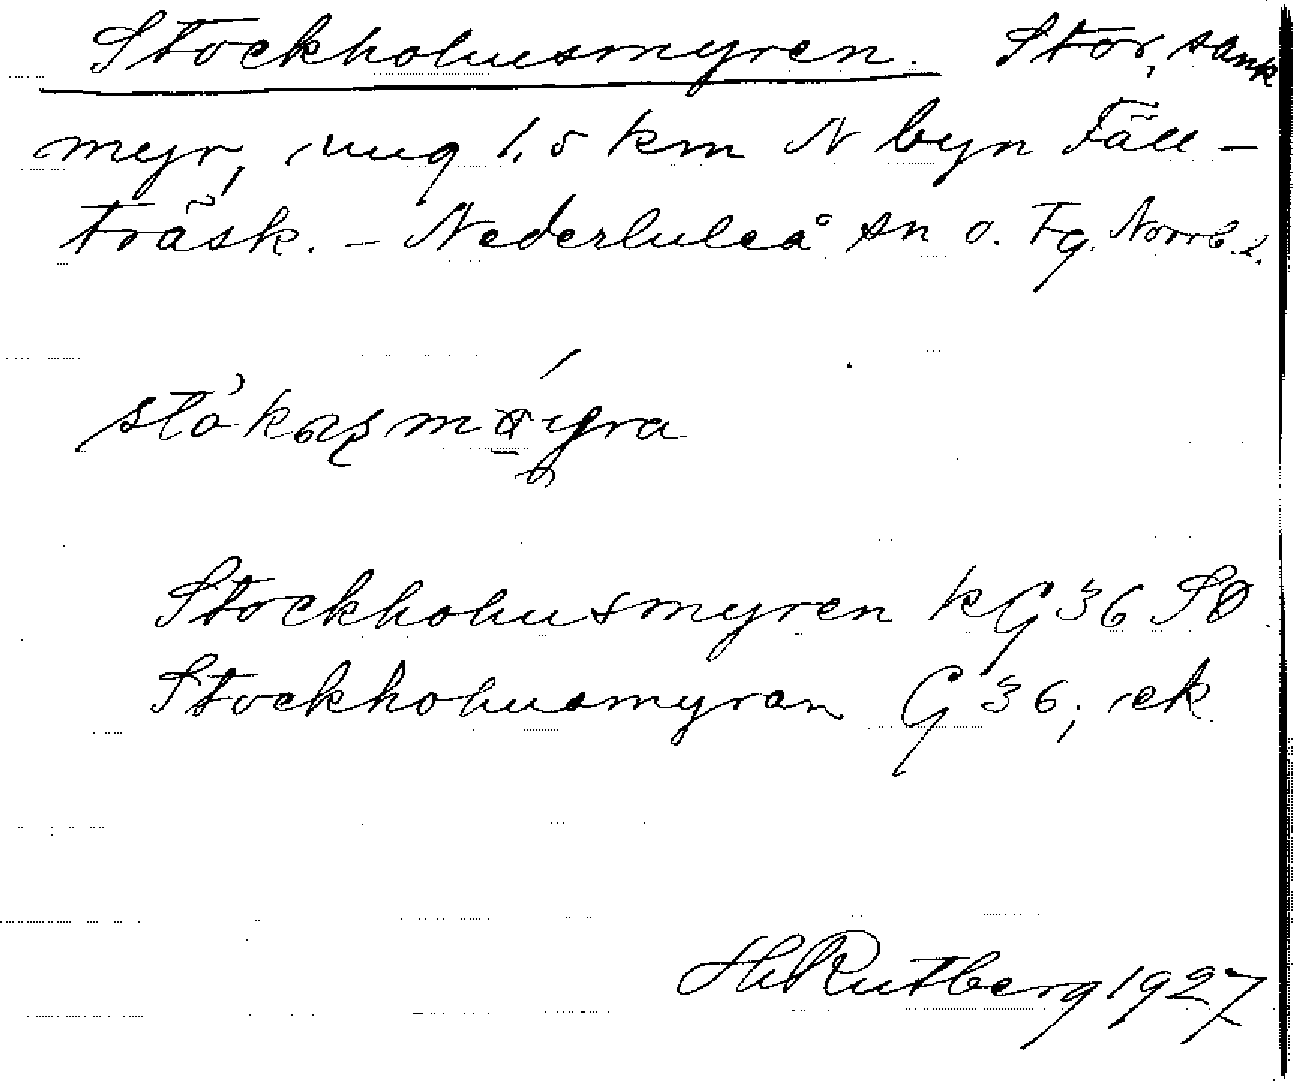 Stockholmsmyren. Stor, sank
myr, ung 1,5 km N byn Fäll-
träsk. - Nederluleå sn o. Tg. Norrb. l.
Stockholmsmyren kG 36 SO
Stockholmsmyran G 36, ek.
H Rutberg 1927